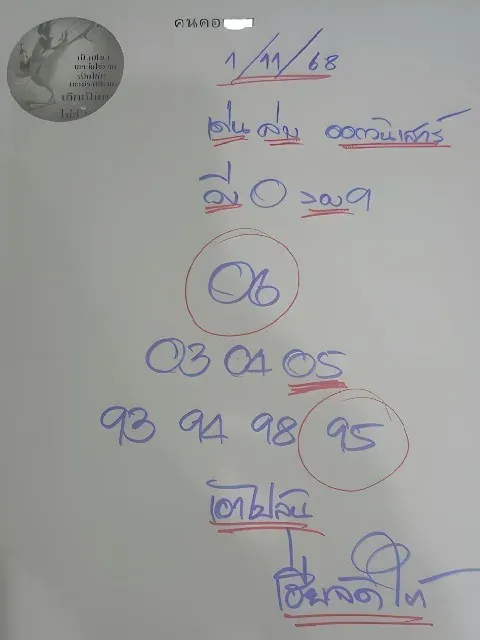 คนคอ
1/11/68
เด่น ล่าง ออกวันเสาร์
วิ่ง 0 รอง 9
06
03 04 05
93 94 98 95
เอาไปลุ้น
เฮียจัดให้